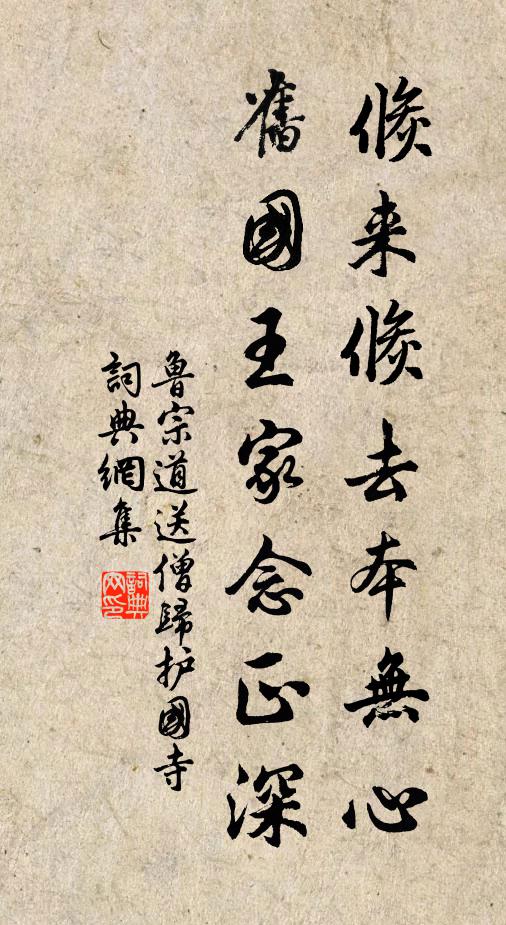 倐来倐去本無心
舊國王家念正深
魯宗道送僧歸护國寺
詞典網集
詞典
网印